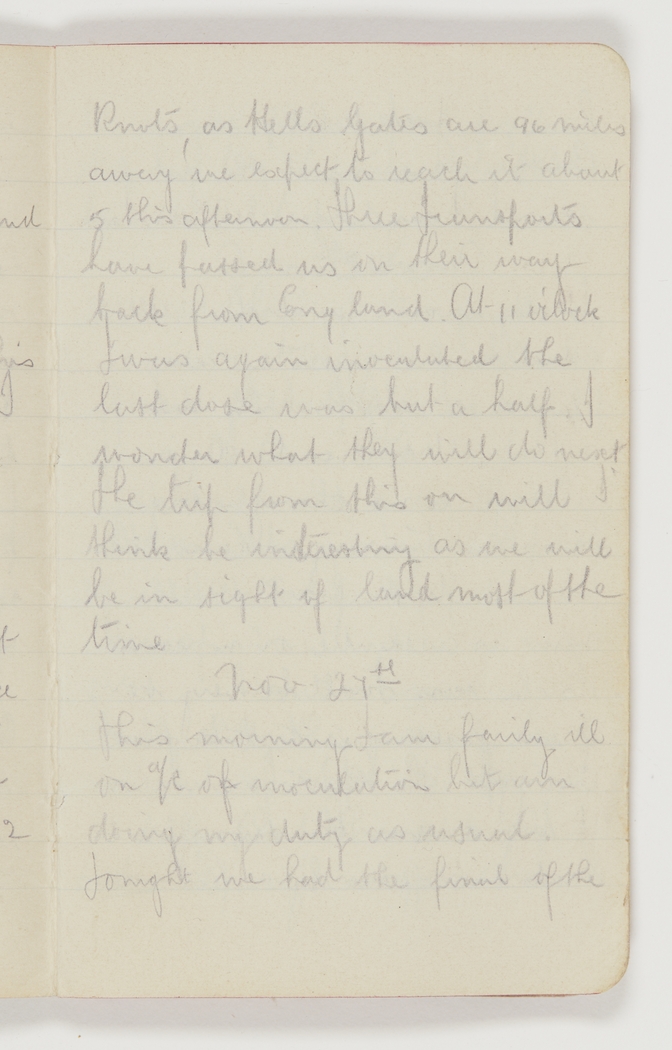 Knots, as Hells Gates are 96 miles
away we expect to reach it about
5 this afternoon. Three Transports
have passed us on their way
back from England. At 11 o'clock
I was again inoculated the
last dose was but a half. I
wonder what they will do next
The trip from this on will I
think be interesting as we will
be in sight of land most of the
time
Nov 27th
This morning I am fairly ill
on a/c of inoculation but am
doing my duty as usual.
Tonight we had the final of the
nd
his
I
t
2